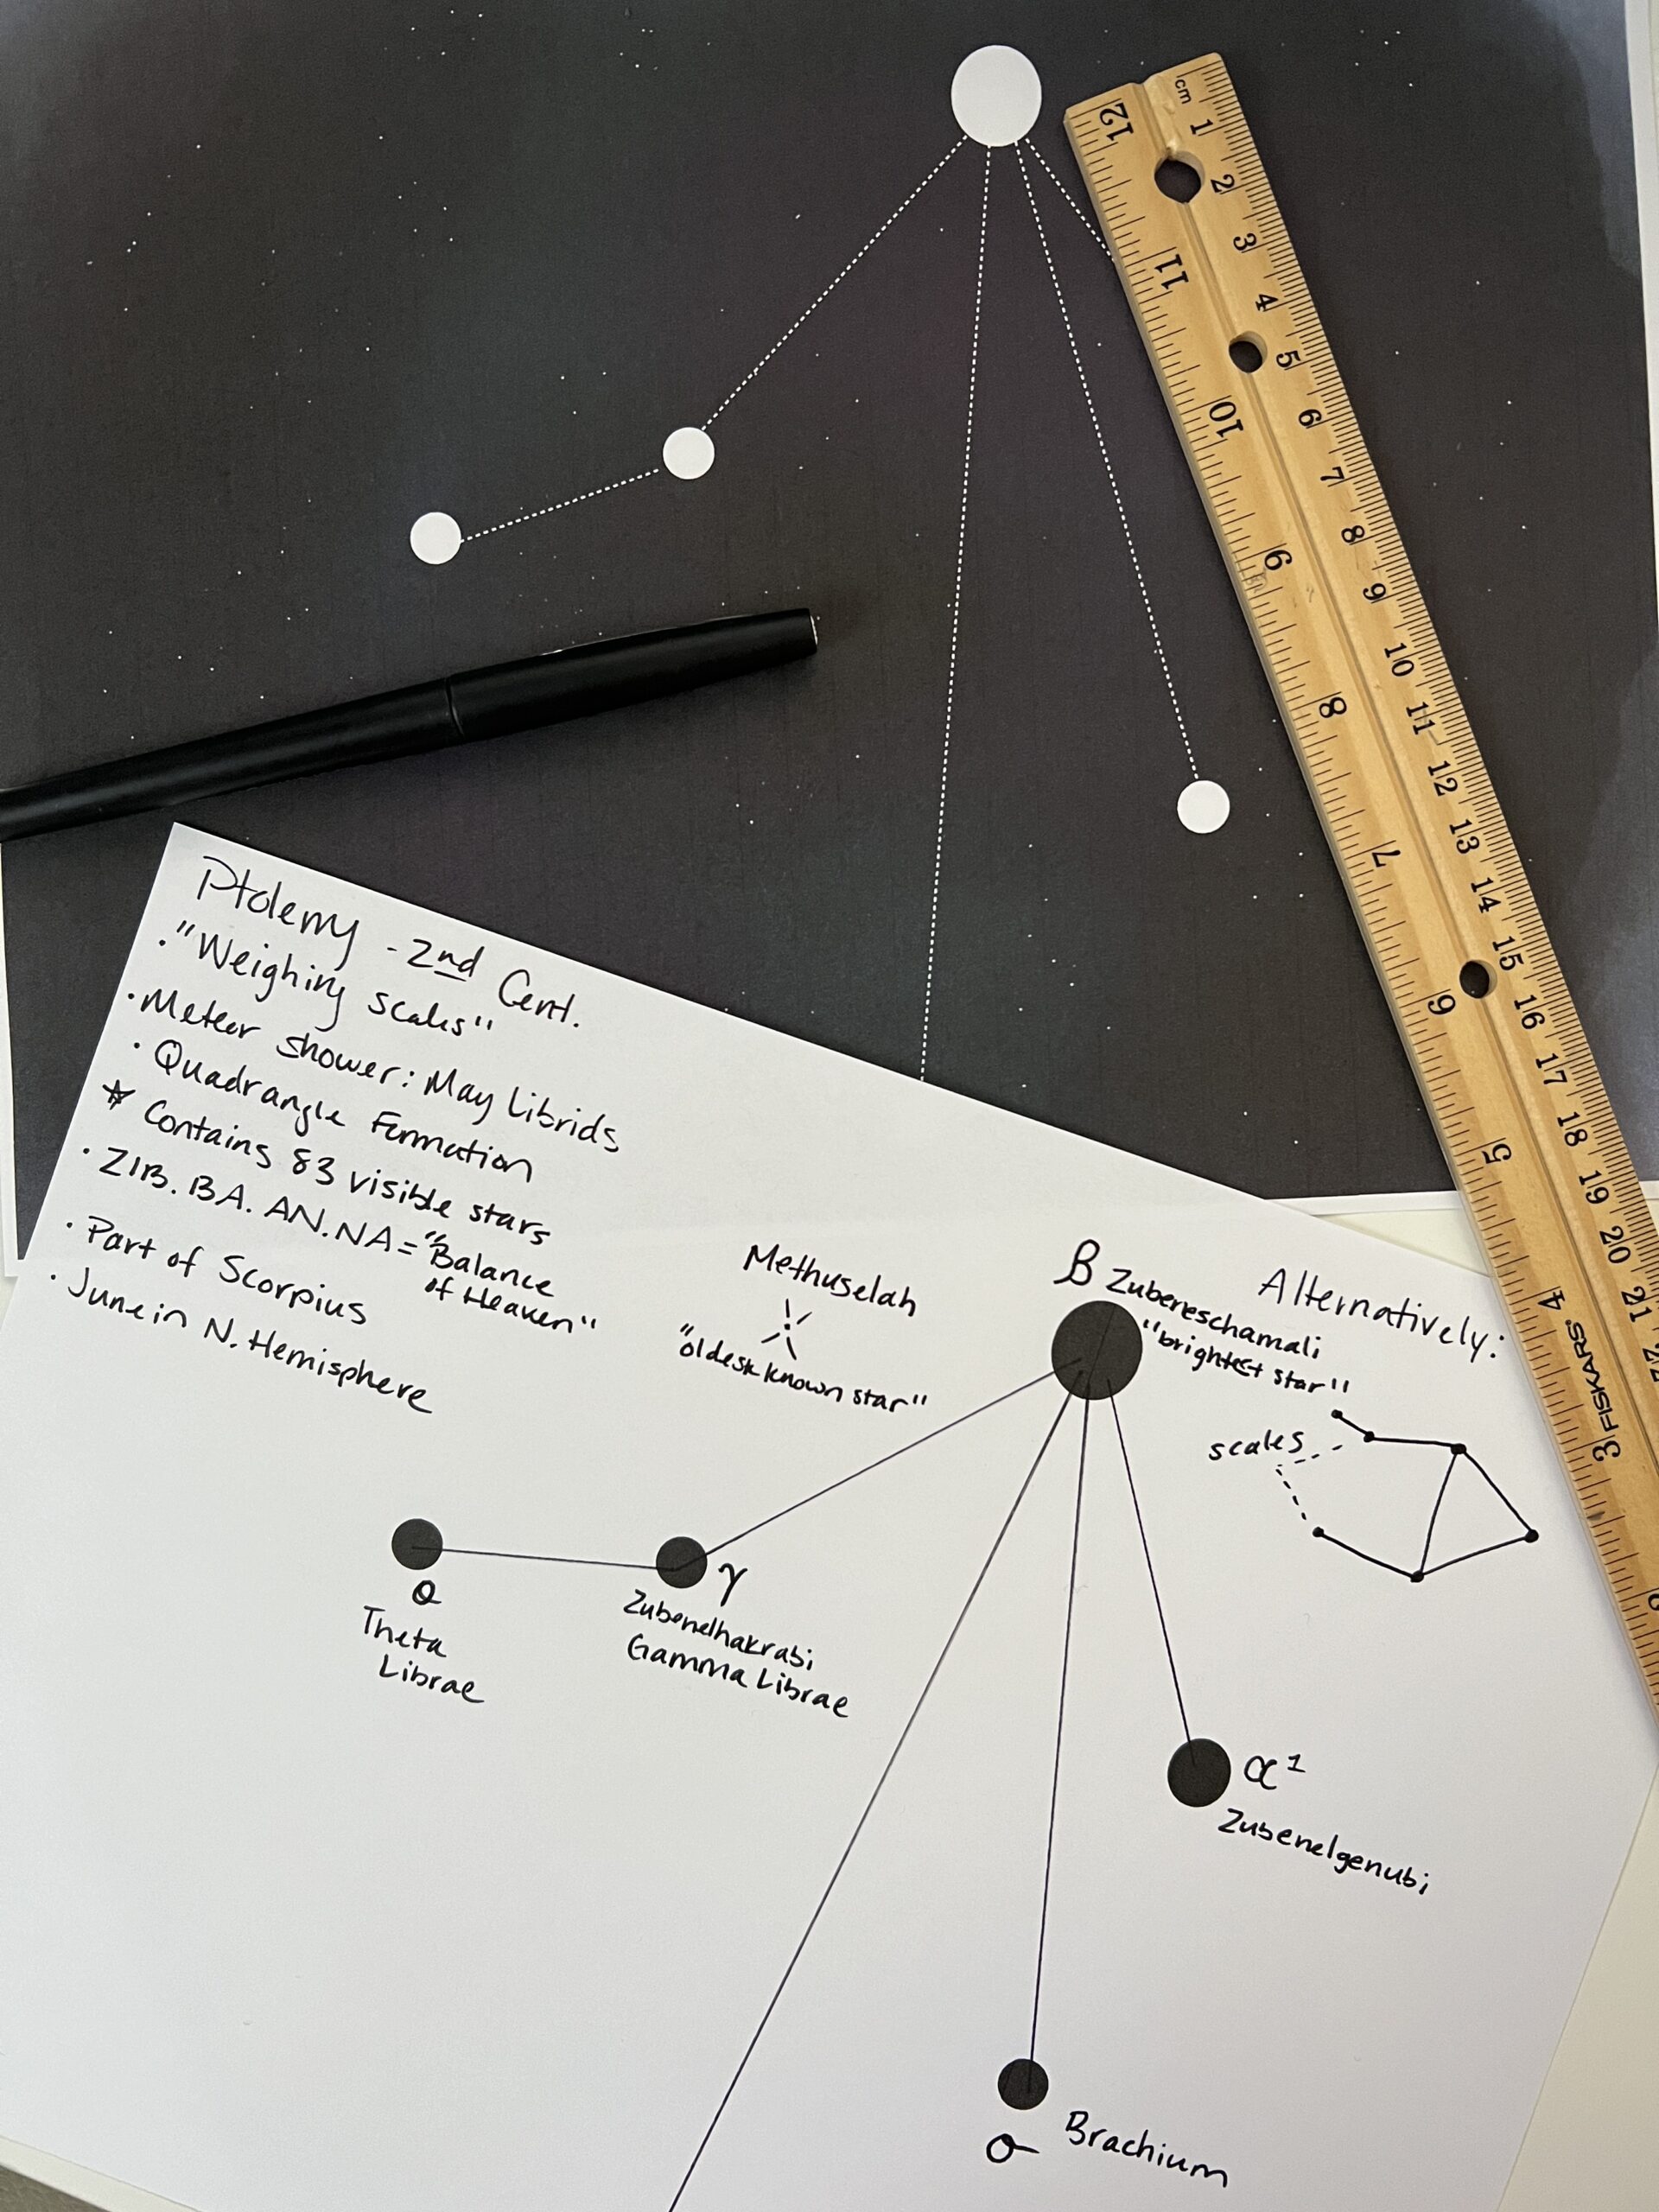 Ptolemy - 2nd Cent.
· "Weighing scales"
· Meteor shower: May Librids
· Quadrangle Formation
☆ Contains 83 visible stars
· ZIB. BA. AN. NA = "Balance
of Heaven"
· Part of Scorpius
· June in N. Hemisphere
Methuselah
"oldest known star"
β Zubeneschamali
"brightest star"
Alternatively:
scales
θ
Theta
Librae
γ
Zubenelhakrabi
Gamma Librae
α¹
Zubenelgenubi
σ Brachium
cm 1 2 3 4 5 6 7 8 9 10 11 12 13 14 15 16 17 18 19 20 21 22
12 11 10 9 8 7 6 5 4 3
FISKARS®